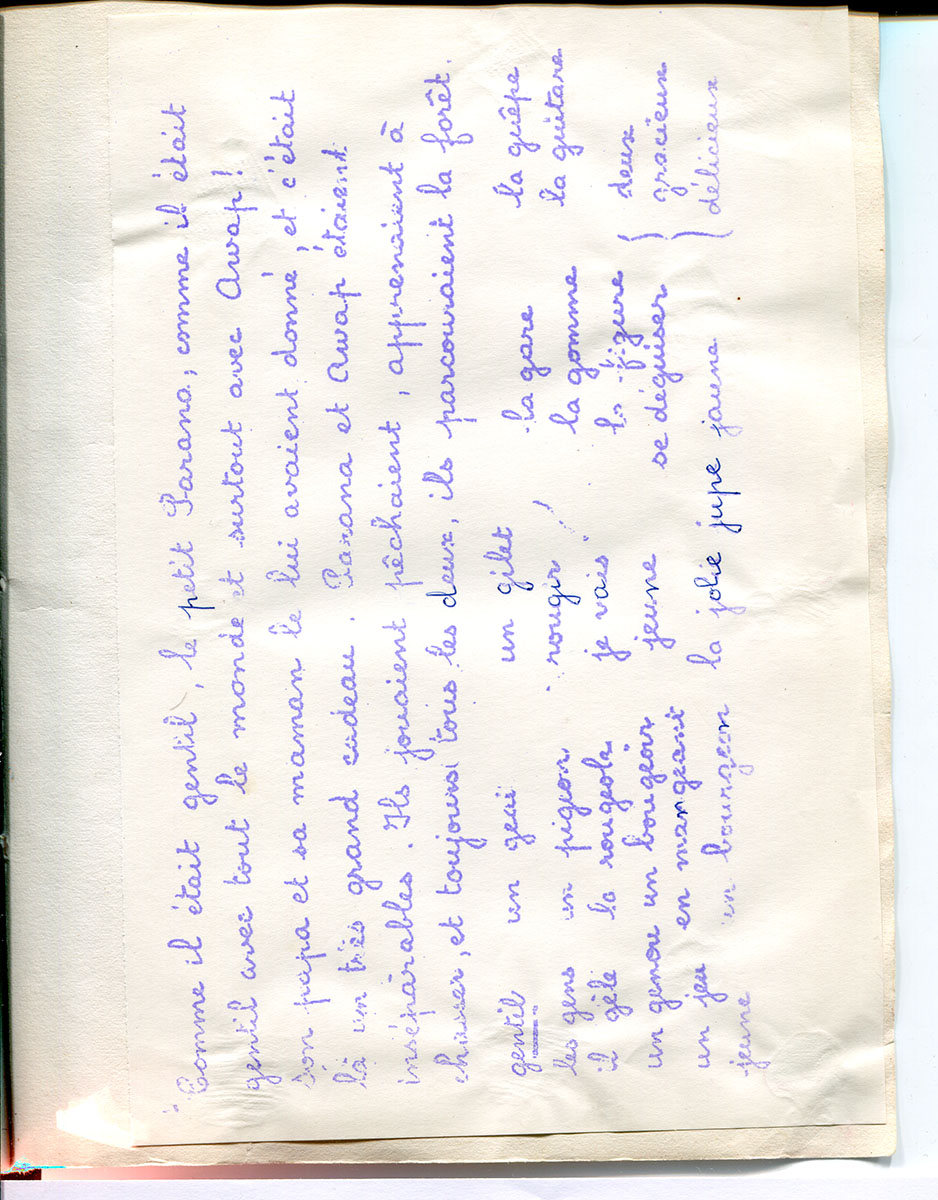 Comme il était gentil, le petit Parana, comme il était
gentil avec tout le monde et surtout avec Awap!
Son papa et sa maman le lui avaient donné, et c'était
là un très grand cadeau. Parana et Awap étaient
inséparables. Ils jouaient, pêchaient, apprenaient à
chasser, et toujours tous les deux, ils parcouraient la forêt.
gentil un geai un gilet la gare la guêpe
les gens un pigeon rougir la gomme la guitare
il gèle la rougeole je vais la figure deux
un genou un bougeoir jeune se déguiser gracieux
un jeu en mangeant délicieux
jeune un bourgeon la jolie jupe jaune